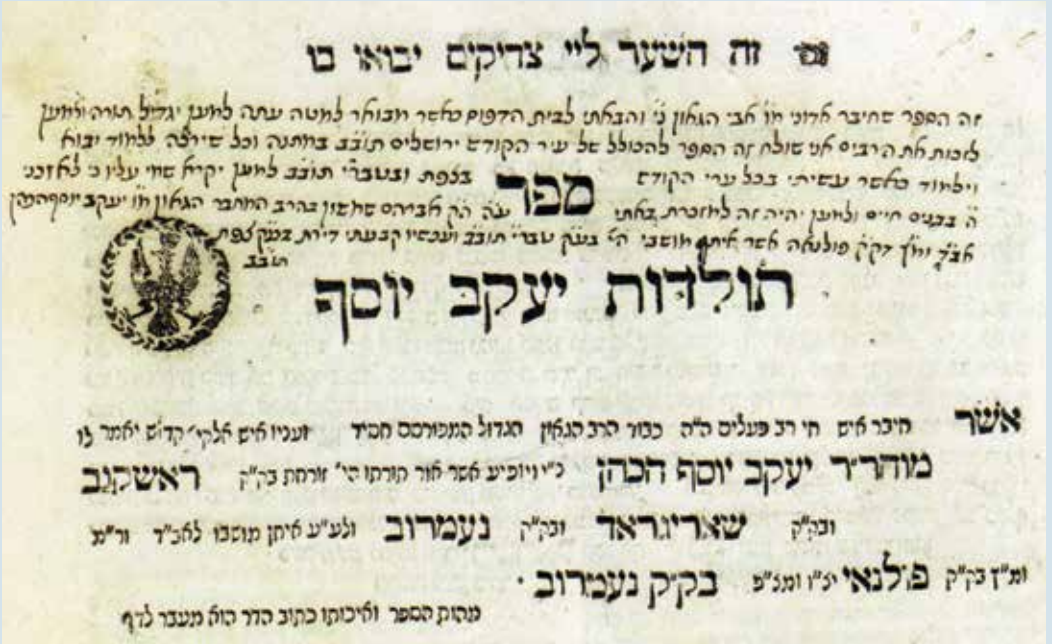 זה השער ליי צדיקים יבואו בו
זה הספר שחיבר אדוני מו אבי הגאון נ״י והבאתי לבית הדפוס כאשר מבואר למטה עתה למען יגדיל תורה ולמען
לזכות את הרבים אני שולח זה הספר להכולל של עיר הקודש ירושלים תובב במתנה וכל שירצה ללמוד יבוא
וילמוד כאשר עשיתי בכל ערי הקודש בצפת ובטברי׳ תובב למען יקרא שמי עליו כי לא זכני
ה׳ בבנים חיים ולמען יהיה זה למזכרת באתי ספר עה הק אברהם שמשון בהרב המחבר הגאון מו יעקב יוסף הכהן
אב״ד דק״ק פולנאה אשר איתן מושבי הי׳ בעק טברי׳ תובב ועכשיו קבעתי דירתי בעק צפת
תובב
תולדות יעקב יוסף
אשר חיבר איש חי רב פעלים ה״ה כבוד הרב הגאון הגדול המפורסם חסיד ועניו איש אלקי׳ קדוש יאמר לו
מוהר״ר יעקב יוסף הכהן נ״י ויופיע אשר אור תורתו הי׳ זורחת בק״ק ראשקוב
ובק״ק שאריגראד ובק״ק נעמרוב ולע״ע איתן מושבו לאב״ד ור״מ
ומ״ץ בק״ק פולנאי יצ״ו ומ״מ בק״ק נעמרוב
מהות הספר ואיכותו כתוב הדר הוא מעבר לדף